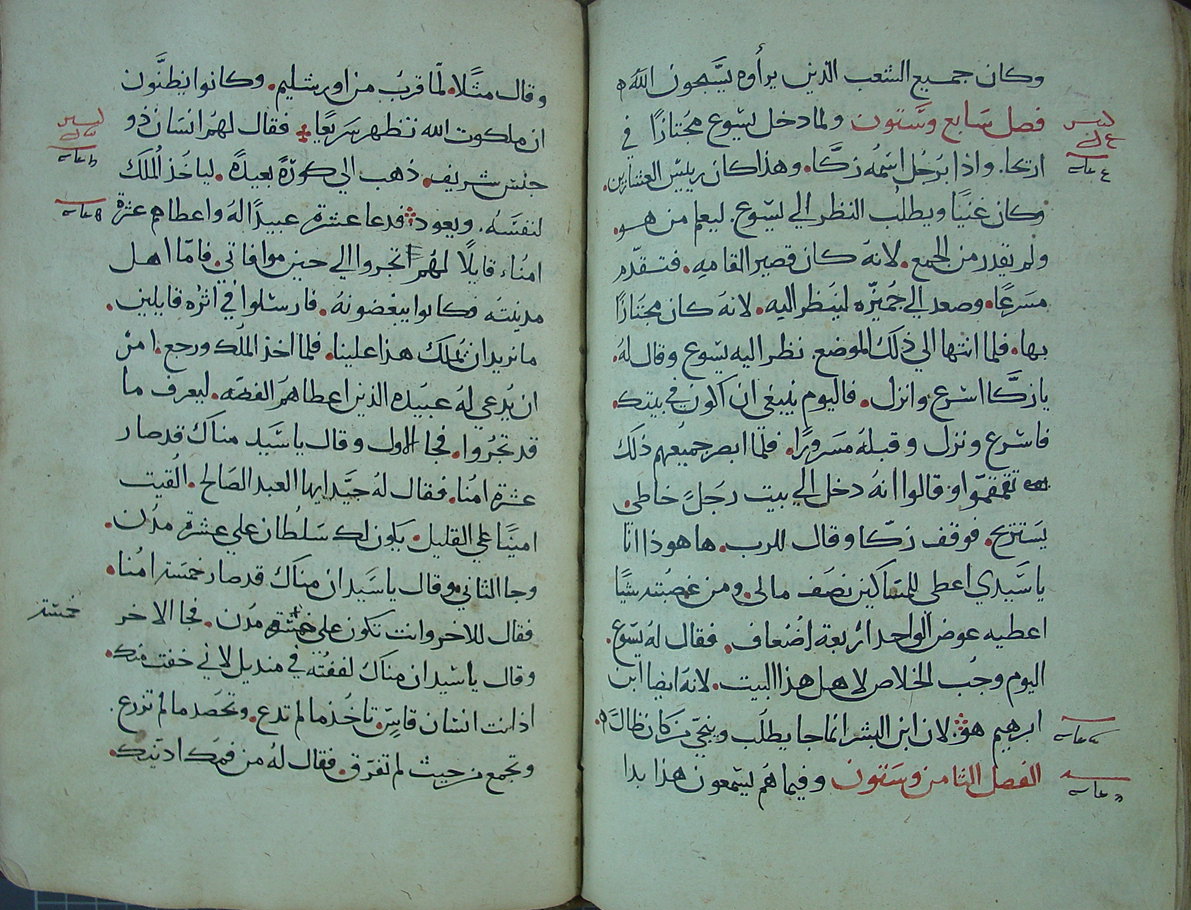 وكان جميع الشعب الذين يرأوه يسّبحون الله
فصل سَابع وسَّتون ولما دخل يسّوع مجُتازًا في
اريحا. واذا برُجل اسمهُ زكَّا. وهذا كان رييسّ العشارين.
وكان غنيًا ويطلب النظر الي يسّوع. ليعلم من هو.
ولم يقدر من الجمع. لانهُ كان قصير القامه. فتقدّم
مسَرعًا. وصعد الي جُميزّه لينُظر اليه. لانهُ كان مجتازًا
بها. فلما انتها الي ذلك الموضع. نظر اليه يسّوع وقال لهُ.
يا زكَّا اسّرع وانزل. فاليوم ينبغي ان اكون في بيتك.
فاسّرع ونزل وقبلهُ مسَرورًا. فلمّا ابصر جميعُهم ذلك
تقمقموا وقالوا انهُ دخل الي بيت رجَلً خاطي.
يسَتريح. فوقف زكّا وقال للرب. ها هوذا انا
يا سَّيدي اعطي للمسَاكين نصَف مالي. ومن غصَبُته شيًا
اعطيه عوض الواحد اربعة اضُعاف. فقال لهُ يسّوع.
اليوم وجُب الخلاص لاهل هذا البيت. لانهَ ايضا ابن
ابرهيم هو. لان ابن البشر انما جا يطلُب وينجّي من كان ظالاً.
الفصل الثامن وسَتون وفيما همُ يسّمعون هذا بدا
وقال مثًلا. لمّا قربُ من اورشليم. وكانوا يظنُّون
ان ملكوت الله تظهر سَريعًا. فقال لهمُ انسَان ذو
جنس شريف. ذهب الي كورّةً بعيدةً. لياخُذ المُلك
لنفسَهُ. ويعود. فدعا عشَرة عبيدًا لهُ واعطاهم عشرة
امُناء قايلًا لهمُ اتجروا الي حين موافاتي. فامّا اهل
مدينته وكانوا يبغضونهُ. فارسَلوا في اثرُه قايلين.
ما نريد ان يملك هذا علينا. فلما اخذ المُلك ورجع. امرَ
ان يُدعي لهُ عبيَده الذين اعطاهمُ الفضه. ليعرف ما
قد تجرُوا. فجا الاول وقال يا سَّيد مناك قد صار
عشَرة امُنا. فقال لهُ جيَّد ايها العبد الصَالح. القيت
امينًا علي القليل. يكون لك سَلطُان علي عشَرة مدُن.
وجا الثاني وقال يا سَيد ان مناك قد صار خمسَة امُنا.
فقال للاخر وانت تكون علي خمسَة مدُن. فجا الاخر
خمسَة
وقال يا سَيد ان مناك لففتُه في منديل لاني خفت منك.
اذ انت انسَان قاسِ. تاخُذ ما لم تدع. وتحصَد ما لم تزرع.
وتجمع من حيث لم تفرّق. فقال لهُ من فمك ادينّك.